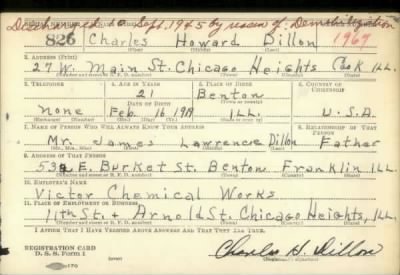 Discharged Sept. 1945 by reason of: Demobilization
826 Charles Howard Dillon 1967
(First) (Middle) (Last)
2. ADDRESS (Print)
27 W. Main St. Chicago Heights Cook ILL.
(Number and street or R. F. D. number) (Town) (County) (State)
3. TELEPHONE
4. AGE IN YEARS
5. PLACE OF BIRTH
6. COUNTRY OF CITIZENSHIP
21
Benton
DATE OF BIRTH
(Town or county)
None
Feb. 16 1919
ILL.
U.S.A
(Mo.) (Day) (Yr.)
(State or country)
7. NAME OF PERSON WHO WILL ALWAYS KNOW YOUR ADDRESS
8. RELATIONSHIP OF THAT PERSON
Mr. James Lawrence Dillon Father
(Mr., Mrs., Miss) (First) (Middle) (Last)
9. ADDRESS OF THAT PERSON
E. Burket St. Benton Franklin ILL
(Number and street or R. F. D. number) (Town) (County) (State)
10. EMPLOYER'S NAME
Victor Chemical Works
11. PLACE OF EMPLOYMENT OR BUSINESS
11th St. & Arnold St. Chicago Heights, ILL.
(Number and street or R. F. D. number) (Town) (County) (State)
I AFFIRM THAT I HAVE VERIFIED ABOVE ANSWERS AND THAT THEY ARE TRUE.
REGISTRATION CARD
D. S. S. Form 1
(over)
Charles H. Dillon